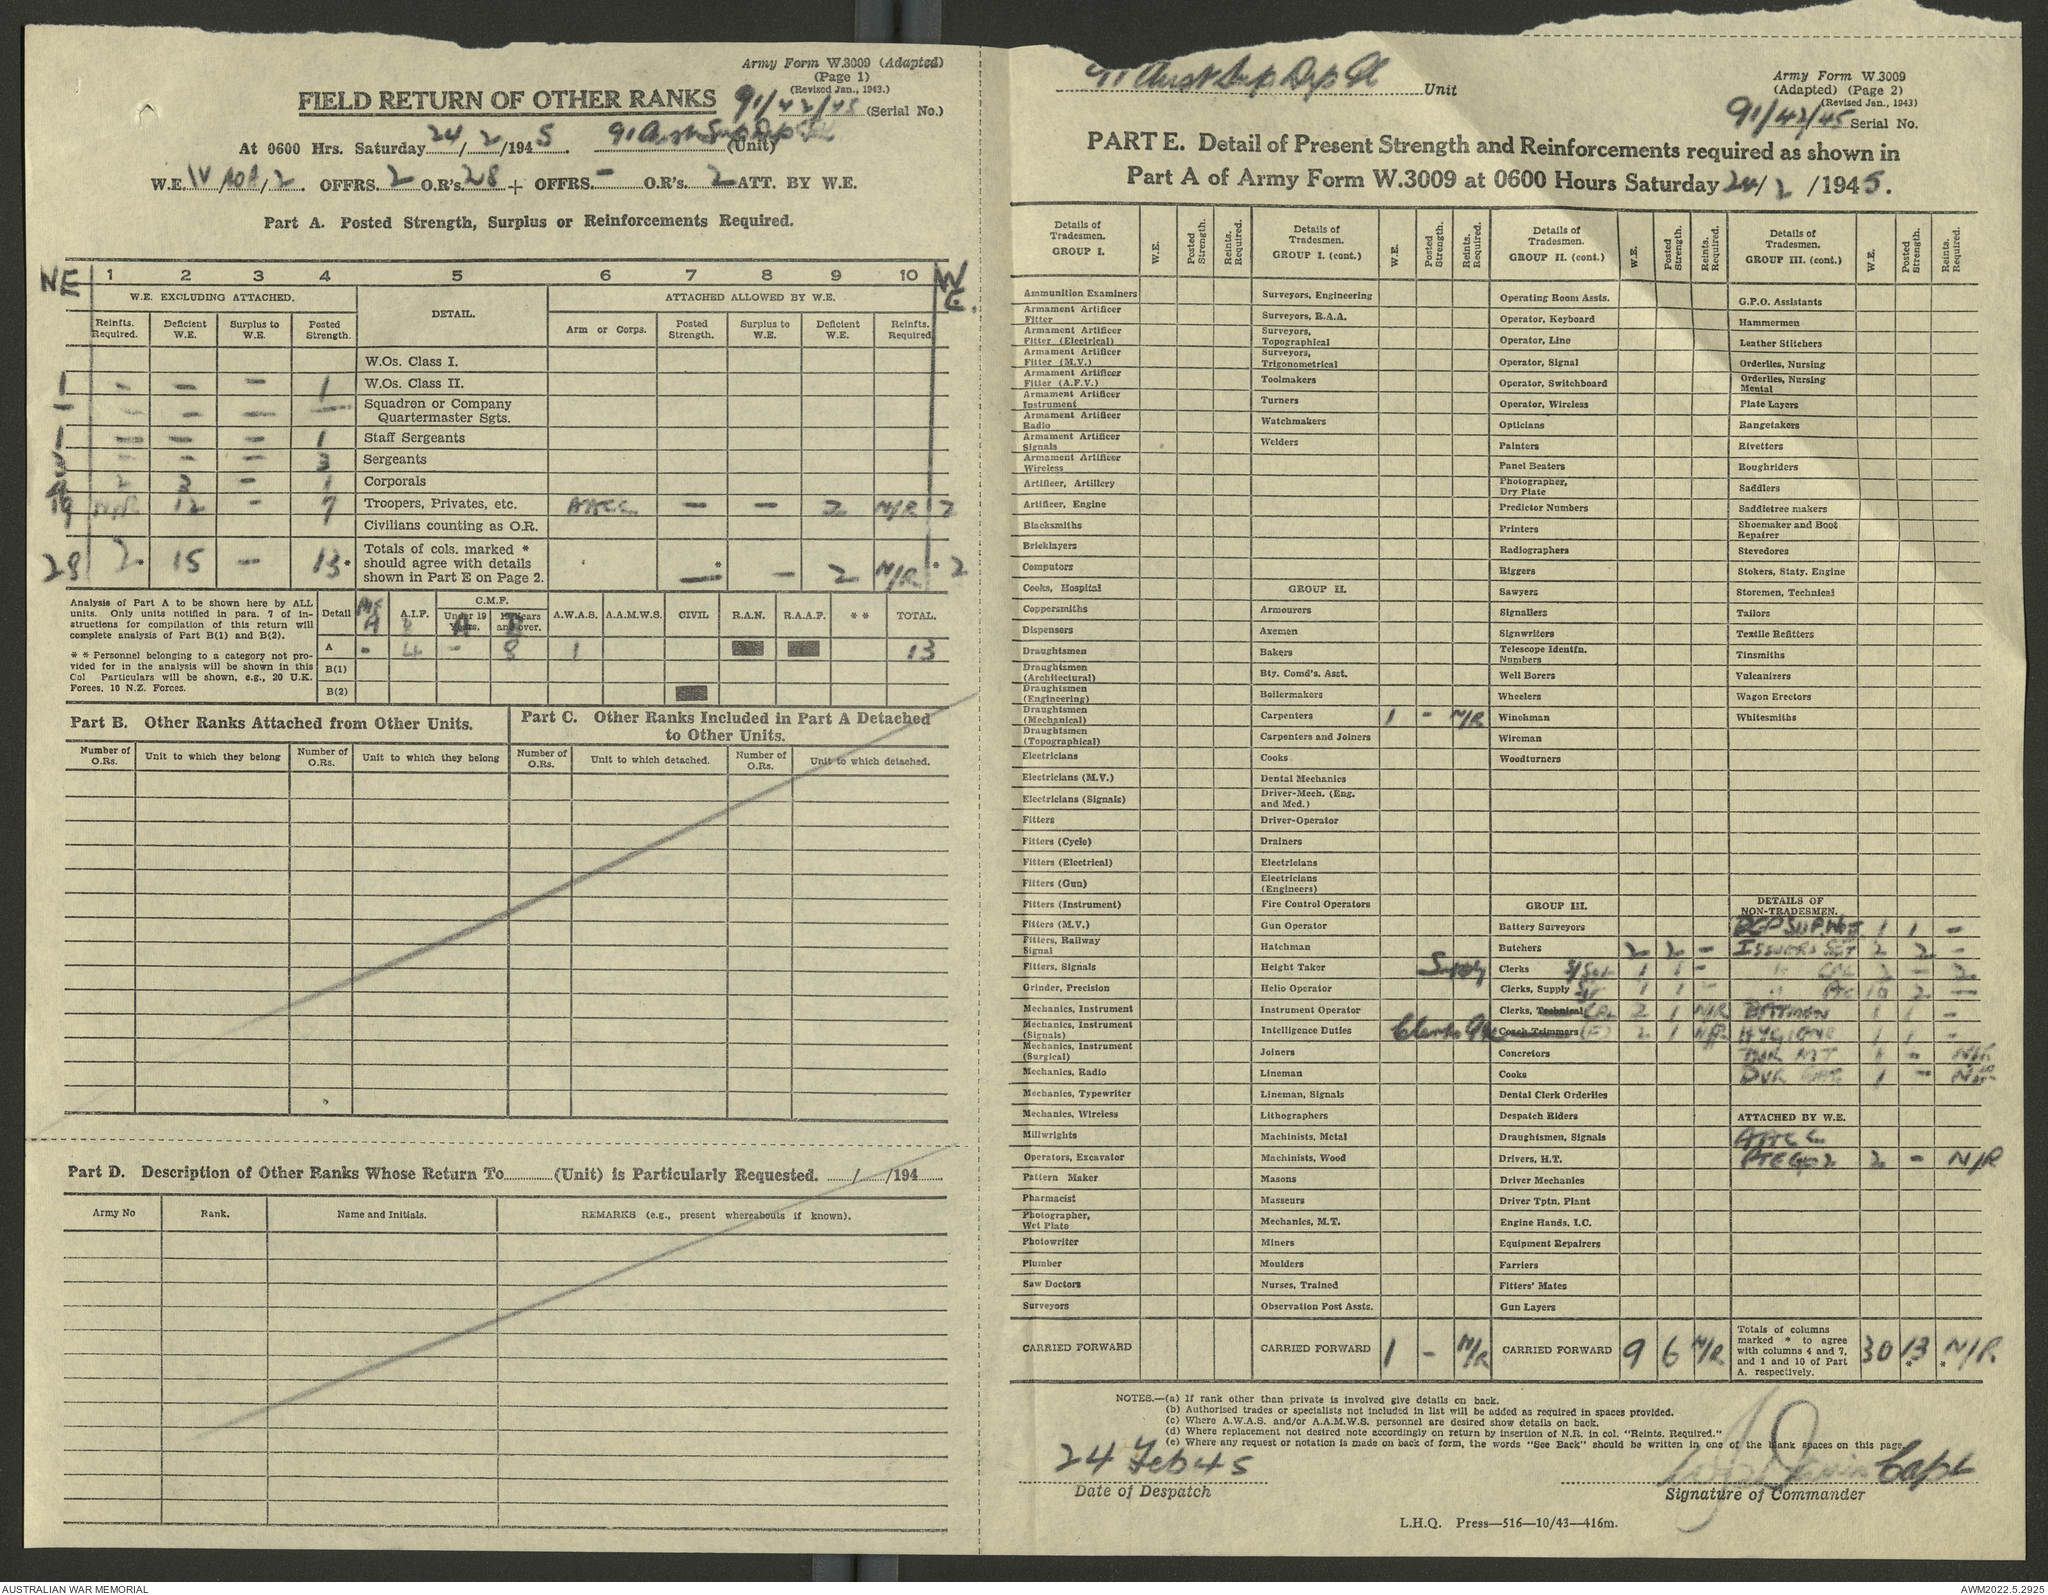 Army Form W.3009 (Adapted)
(Page 1)
(Revised Jan., 1943.)
FIELD RETURN OF OTHER RANKS 91/42/45 (Serial No.)
At 0600 Hrs. Saturday 24/2/1945. 91 Aust Sup Dep (Unit)
W.E. IV /2. OFFRS. 2 O.R's. 28 + OFFRS. - O.R's. 2 ATT. BY W.E.
Part A. Posted Strength, Surplus or Reinforcements Required.
WE 1 2 3 4 5 6 7 8 9 10 W.E.
W.E. EXCLUDING ATTACHED. DETAIL. ATTACHED ALLOWED BY W.E.
Reinfts. Required. Deficient W.E. Surplus to W.E. Posted Strength. Arm or Corps. Posted Strength. Surplus to W.E. Deficient W.E. Reinfts. Required
W.Os. Class I.
1 - - - 1 W.Os. Class II.
- - - - - Squadron or Company Quartermaster Sgts.
1 - - - 1 Staff Sergeants
- - - 3 Sergeants
2 3 - 1 Corporals
19 N/R 12 - 7 Troopers, Privates, etc. AACC - - 2 N/R 2
Civilians counting as O.R.
28 2 * 15 - 13 * Totals of cols. marked * should agree with details shown in Part E on Page 2. - * - 2 N/R * 2
Analysis of Part A to be shown here by ALL units. Only units notified in para. 7 of instructions for compilation of this return will complete analysis of Part B(1) and B(2).
** Personnel belonging to a category not provided for in the analysis will be shown in this Col Particulars will be shown, e.g., 20 U.K. Forces, 10 N.Z. Forces.
Detail A.I.F. C.M.F. Under 19 Years. 19 Years and over. A.W.A.S. A.A.M.W.S. CIVIL R.A.N. R.A.A.F. ** TOTAL.
A - 4 - 8 1 13
B(1)
B(2)
Part B. Other Ranks Attached from Other Units.
Part C. Other Ranks Included in Part A Detached to Other Units.
Number of O.Rs. Unit to which they belong Number of O.Rs. Unit to which they belong Number of O.Rs. Unit to which detached. Number of O.Rs. Unit to which detached.
Part D. Description of Other Ranks Whose Return To (Unit) is Particularly Requested. / /194
Army No Rank. Name and Initials. REMARKS (e.g., present whereabouts if known).
91 Aust Sup Dep Pl Unit
Army Form W.3009
(Adapted) (Page 2)
(Revised Jan., 1943)
91/42/45 Serial No.
PART E. Detail of Present Strength and Reinforcements required as shown in
Part A of Army Form W.3009 at 0600 Hours Saturday 24/2/1945.
Details of Tradesmen. GROUP I. W.E. Posted Strength. Reints. Required.
Ammunition Examiners
Armament Artificer Fitter
Armament Artificer Fitter (Electrical)
Armament Artificer Fitter (M.V.)
Armament Artificer Fitter (A.F.V.)
Armament Artificer Instrument
Armament Artificer Radio
Armament Artificer Signals
Armament Artificer Wireless
Artificer, Artillery
Artificer, Engine
Blacksmiths
Bricklayers
Computors
Cooks, Hospital
Coppersmiths
Dispensers
Draughtsmen
Draughtsmen (Architectural)
Draughtsmen (Engineering)
Draughtsmen (Mechanical)
Draughtsmen (Topographical)
Electricians
Electricians (M.V.)
Electricians (Signals)
Fitters
Fitters (Cycle)
Fitters (Electrical)
Fitters (Gun)
Fitters (Instrument)
Fitters (M.V.)
Fitters, Railway Signal
Fitters, Signals
Grinder, Precision
Mechanics, Instrument
Mechanics, Instrument (Signals)
Mechanics, Instrument (Surgical)
Mechanics, Radio
Mechanics, Typewriter
Mechanics, Wireless
Millwrights
Operators, Excavator
Pattern Maker
Pharmacist
Photographer, Wet Plate
Photowriter
Plumber
Saw Doctors
Surveyors
CARRIED FORWARD
Details of Tradesmen. GROUP I. (cont.) W.E. Posted Strength. Reints. Required.
Surveyors, Engineering
Surveyors, R.A.A.
Surveyors, Topographical
Surveyors, Trigonometrical
Toolmakers
Turners
Watchmakers
Welders
GROUP II.
Armourers
Axemen
Bakers
Bty. Comd's. Asst.
Boilermakers
Carpenters 1 - N/R
Carpenters and Joiners
Cooks
Dental Mechanics
Driver-Mech. (Eng. and Med.)
Driver-Operator
Drainers
Electricians
Electricians (Engineers)
Fire Control Operators
Gun Operator
Hatchman
Height Taker
Helio Operator
Instrument Operator
Intelligence Duties
Joiners
Lineman
Lineman, Signals
Lithographers
Machinists, Metal
Machinists, Wood
Masons
Masseurs
Mechanics, M.T.
Miners
Moulders
Nurses, Trained
Observation Post Assts.
CARRIED FORWARD 1 - N/R
Details of Tradesmen. GROUP II. (cont.) W.E. Posted Strength. Reints. Required.
Operating Room Assts.
Operator, Keyboard
Operator, Line
Operator, Signal
Operator, Switchboard
Operator, Wireless
Opticians
Painters
Panel Beaters
Photographer, Dry Plate
Predictor Numbers
Printers
Radiographers
Riggers
Sawyers
Signallers
Signwriters
Telescope Identfn. Numbers
Well Borers
Wheelers
Winchman
Wireman
Woodturners
GROUP III.
Battery Surveyors
Butchers 2 2 -
Supply Clerks S/Sgt 1 1 -
Clerks, Supply 1 1 -
Clerks, Technical CPL 2 1 N/R
Clerks Coach Trimmers 2 1 N/R
Concretors
Cooks
Dental Clerk Orderlies
Despatch Riders
Draughtsmen, Signals
Drivers, H.T.
Driver Mechanics
Driver Tptn. Plant
Engine Hands, I.C.
Equipment Repairers
Farriers
Fitters' Mates
Gun Layers
CARRIED FORWARD 9 6 N/R
Details of Tradesmen. GROUP III. (cont.) W.E. Posted Strength. Reints. Required.
G.P.O. Assistants
Hammermen
Leather Stitchers
Orderlies, Nursing
Orderlies, Nursing Mental
Plate Layers
Rangetakers
Rivetters
Roughriders
Saddlers
Saddletree makers
Shoemaker and Boot Repairer
Stevedores
Stokers, Staty. Engine
Storemen, Technical
Tailors
Textile Refitters
Tinsmiths
Vulcanizers
Wagon Erectors
Whitesmiths
DETAILS OF NON-TRADESMEN.
1 1 -
ISSUERS SGT 2 2 -
" CPL 2 - 2
" Pte 2 -
BATMEN 1 1 -
HYGIENE 1 1 -
DVR MT 1 - N/R
DVR 1 - N/R
ATTACHED BY W.E.
AACC
PTE GP 2 2 - N/R
Totals of columns marked * to agree with columns 4 and 7, and 1 and 10 of Part A. respectively. 30 13 * * N/R
NOTES.—(a) If rank other than private is involved give details on back.
(b) Authorised trades or specialists not included in list will be added as required in spaces provided.
(c) Where A.W.A.S. and/or A.A.M.W.S. personnel are desired show details on back.
(d) Where replacement not desired note accordingly on return by insertion of N.R. in col. "Reints. Required."
(e) Where any request or notation is made on back of form, the words "See Back" should be written in one of the blank spaces on this page.
24 Feb 45 Capt
Date of Despatch Signature of Commander
L.H.Q. Press—516—10/43—416m.
AUSTRALIAN WAR MEMORIAL AWM2022.5.2925